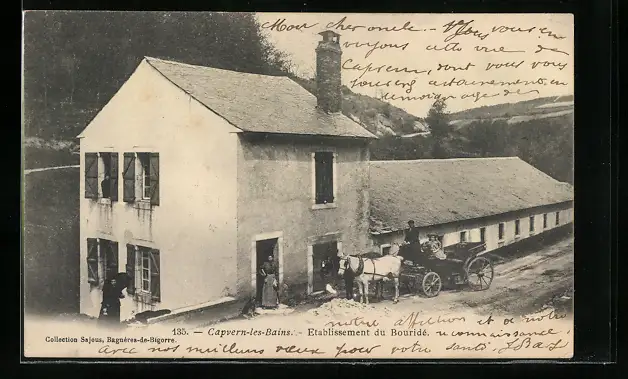 Mon cher oncle - Nous vous en
voyons cette vue de
Capvern, dont vous vous
en
témoignage de
135. — Capvern-les-Bains. — Etablissement du Bouridé.
notre affection et de notre reconnaissance.
Collection Sajous, Bagnères-de-Bigorre.
avec nos meilleurs vœux pour votre santé.